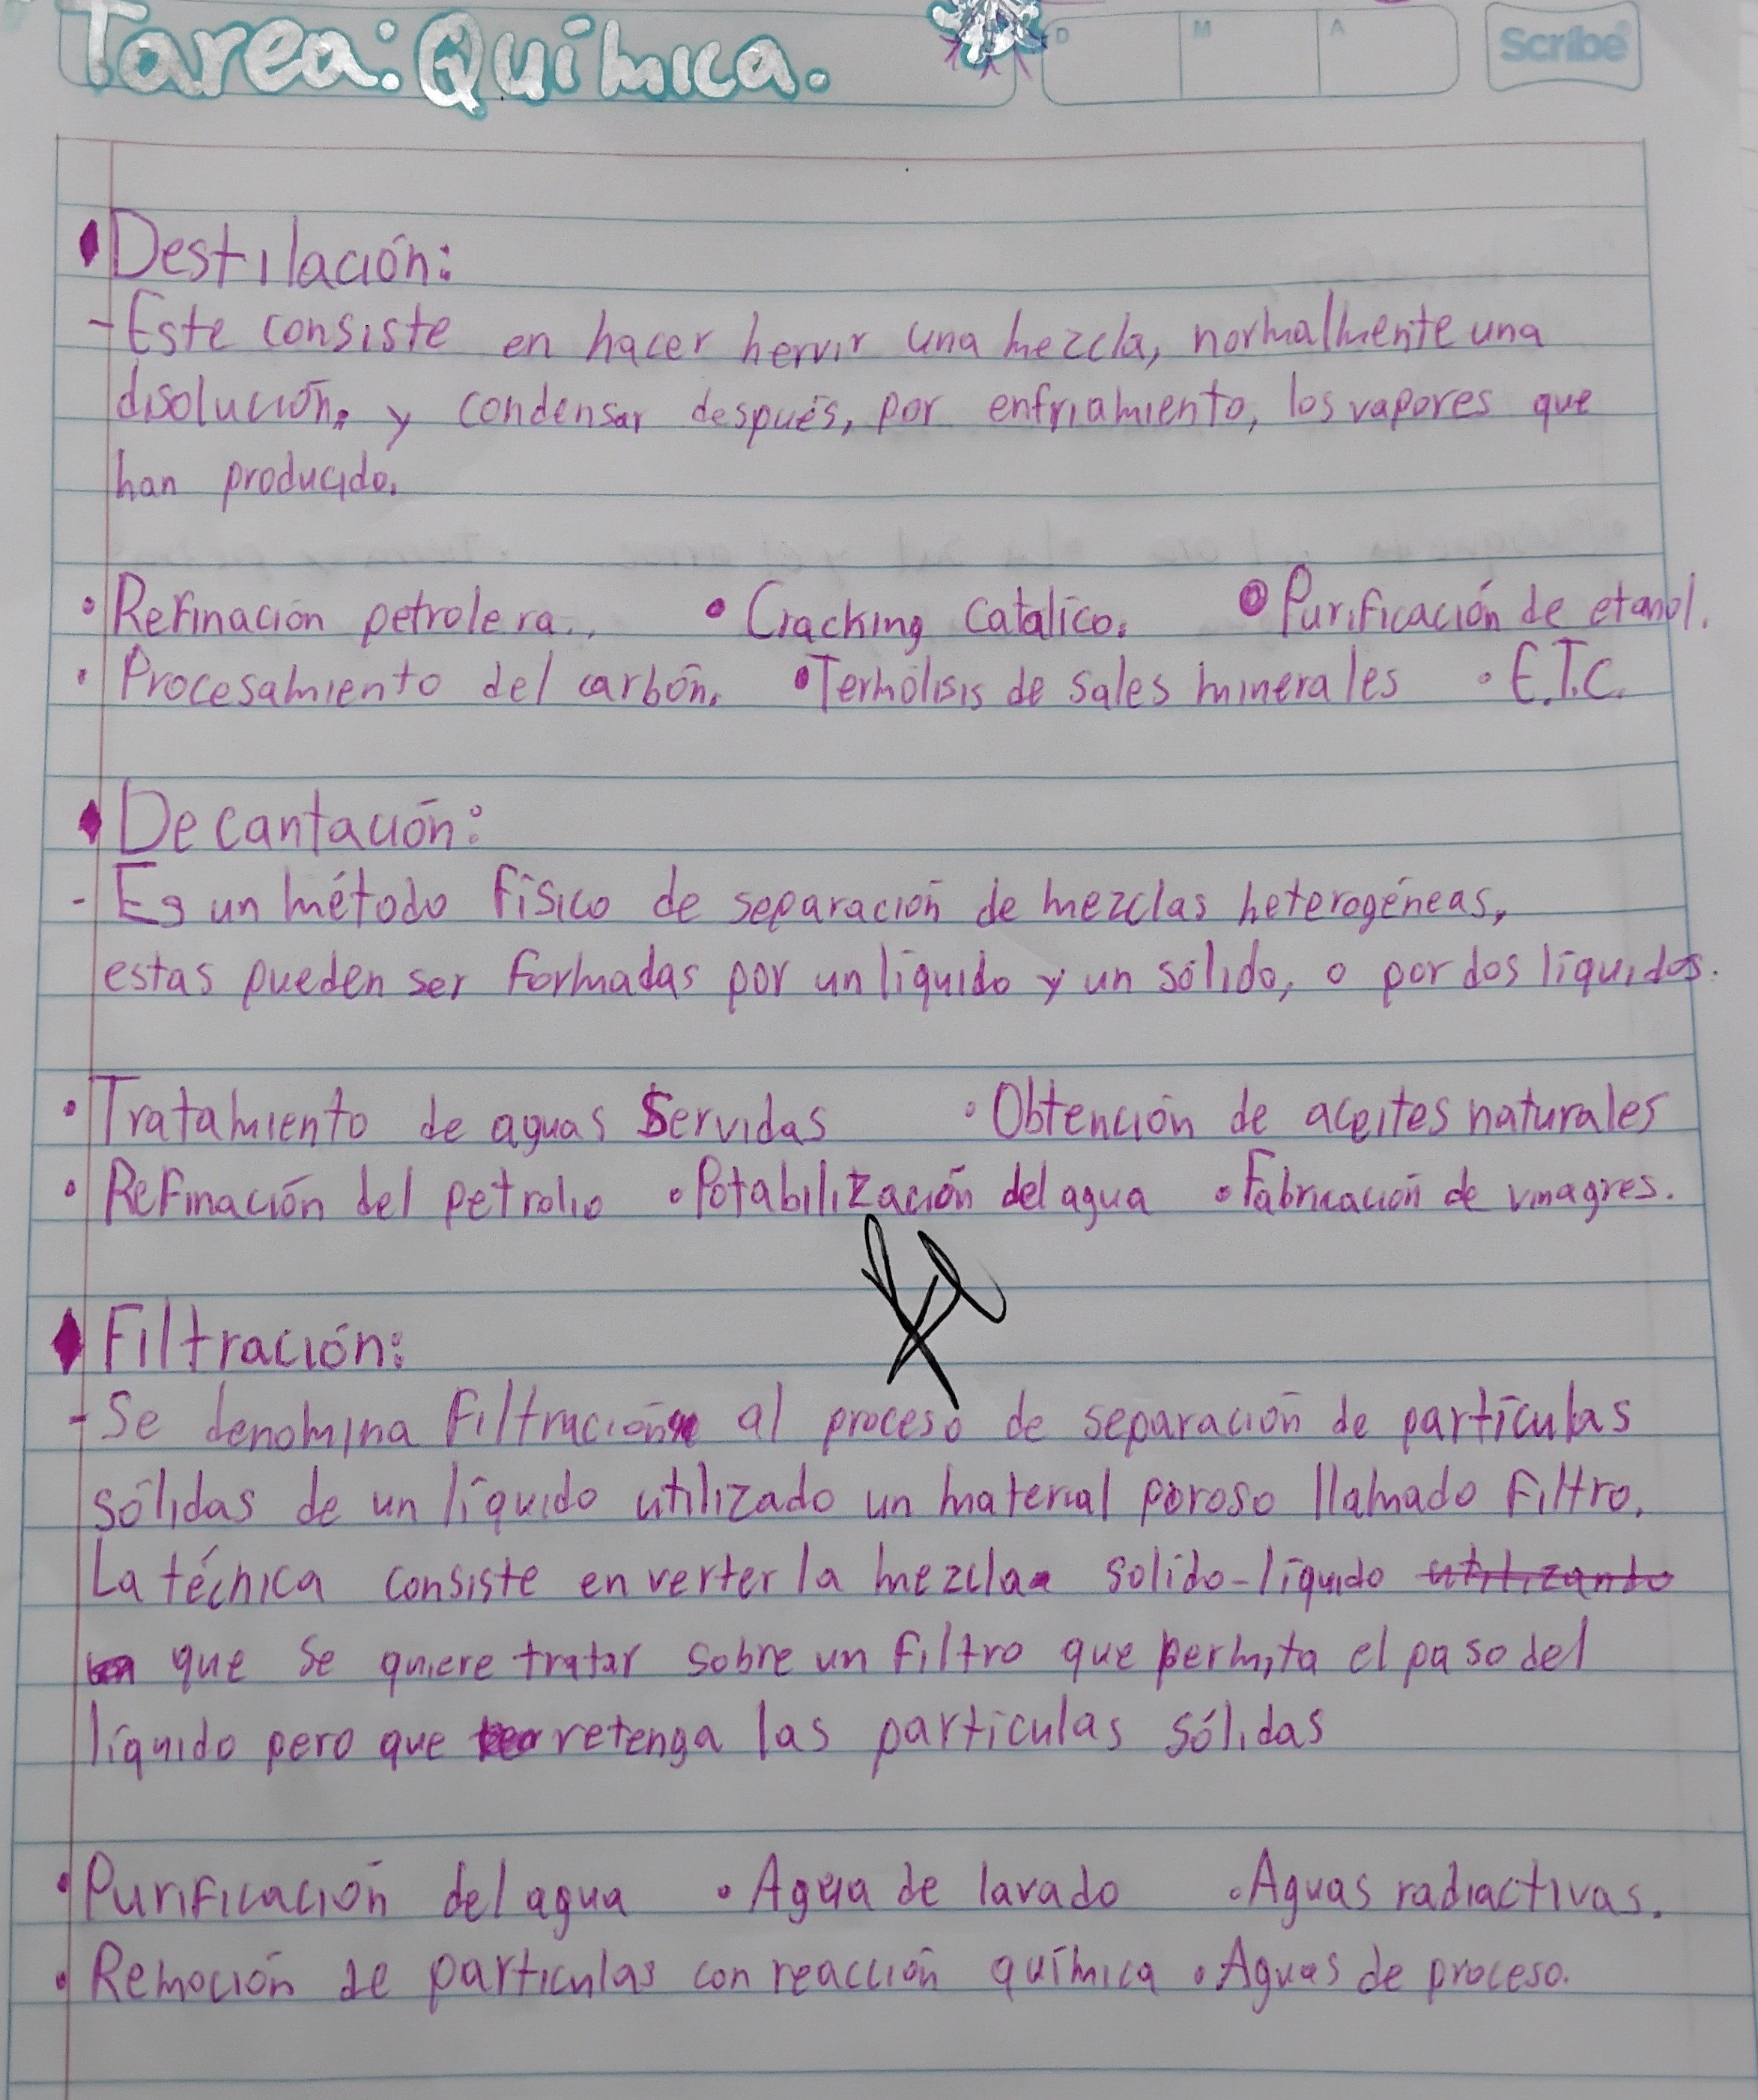 Tarea: Química.
D M A Scribe
Destilación:
- Este consiste en hacer hervir una mezcla, normalmente una
disolución, y condensar después, por enfriamiento, los vapores que
han producido.
• Refinación petrolera.. • Cracking Catalico. • Purificación de etanol.
• Procesamiento del carbón. • Termólisis de sales minerales • E.T.C.
Decantación:
- Es un método físico de separación de mezclas heterogéneas,
estas pueden ser formadas por un líquido y un sólido, o por dos líquidos.
• Tratamiento de aguas Servidas • Obtención de aceites naturales
• Refinación del petrolio • Potabilización del agua • Fabricación de vinagres.
Filtración:
- Se denomina filtración al proceso de separación de partículas
sólidas de un líquido utilizado un material poroso llamado filtro.
La técnica consiste en verter la mezcla solido-líquido utilizando
que se quiere tratar sobre un filtro que permita el paso del
líquido pero que retenga las partículas sólidas
• Purificación del agua • Agua de lavado • Aguas radiactivas.
• Remoción de partículas con reacción química • Aguas de proceso.